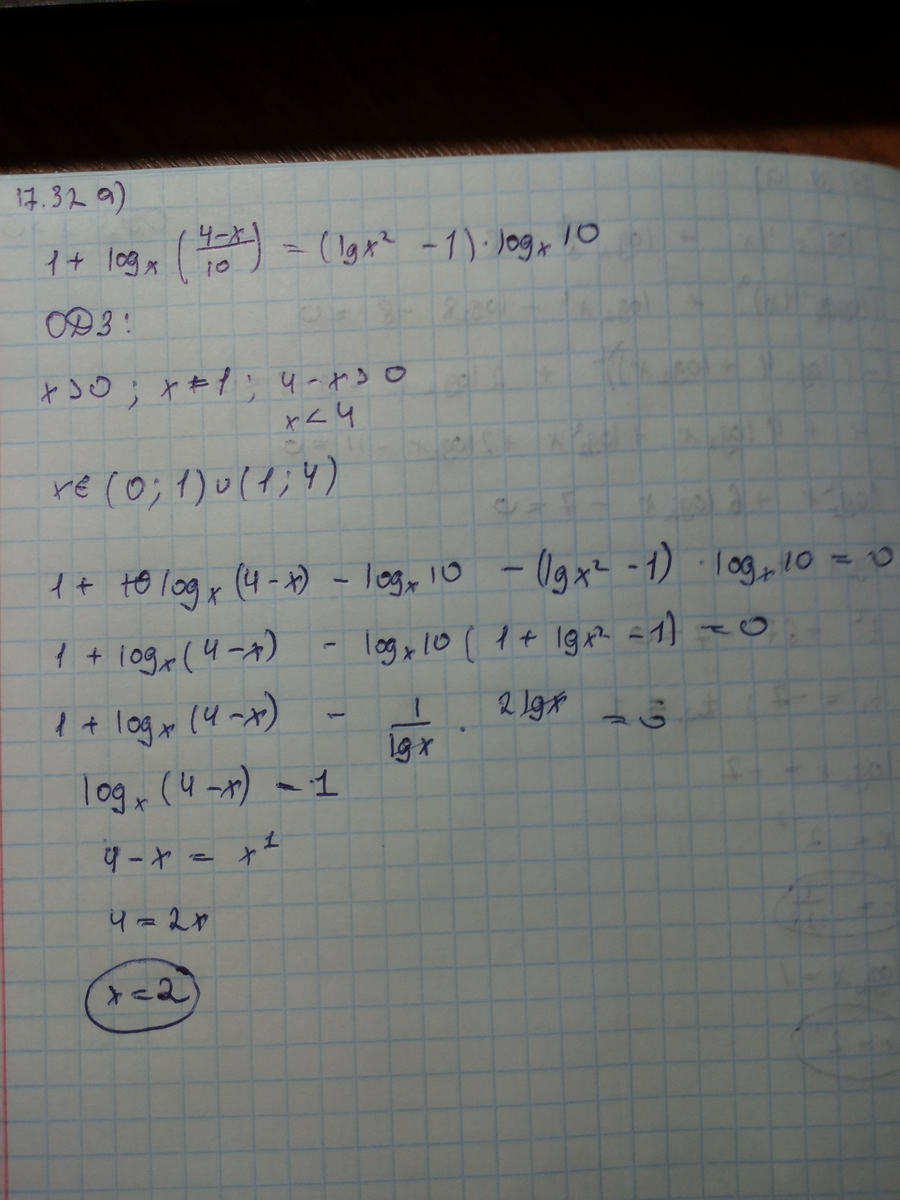 17.32 а)
1 + log_x ((4-x)/10) = (lgx² - 1) · log_x 10
ОДЗ:
x>0 ; x≠1 ; 4-x>0
x<4
x∈(0;1)∪(1;4)
1 + log_x (4-x) - log_x 10 - (lgx² - 1) · log_x 10 = 0
1 + log_x (4-x) - log_x 10 (1 + lgx² - 1) = 0
1 + log_x (4-x) - 1/lgx · 2lgx = 0
log_x (4-x) = 1
4-x = x¹
4 = 2x
x=2